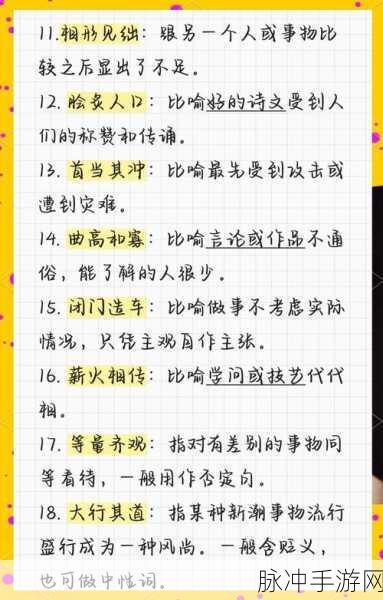 11.相形见绌：跟另一个人或事物比
较之后显出了不足。
12. 脍炙人口：比喻好的诗文受到人
们的称赞和传诵。
13. 首当其冲：比喻最先受到攻击或
遭到灾难。
14. 曲高和寡：比喻言论或作品不通
俗，能了解的人很少。
15. 闭门造车：比喻做事不考虑实际
情况，只凭主观自作主张。
16. 薪火相传：比喻学问或技艺代代
相。
17. 等量齐观：指对有差别的事物同
等看待，一般用作否定句。
18. 大行其道：指某种新潮事物流行
盛行成为一种风尚。一般含贬义，
也可做中性词。
脉冲手游网